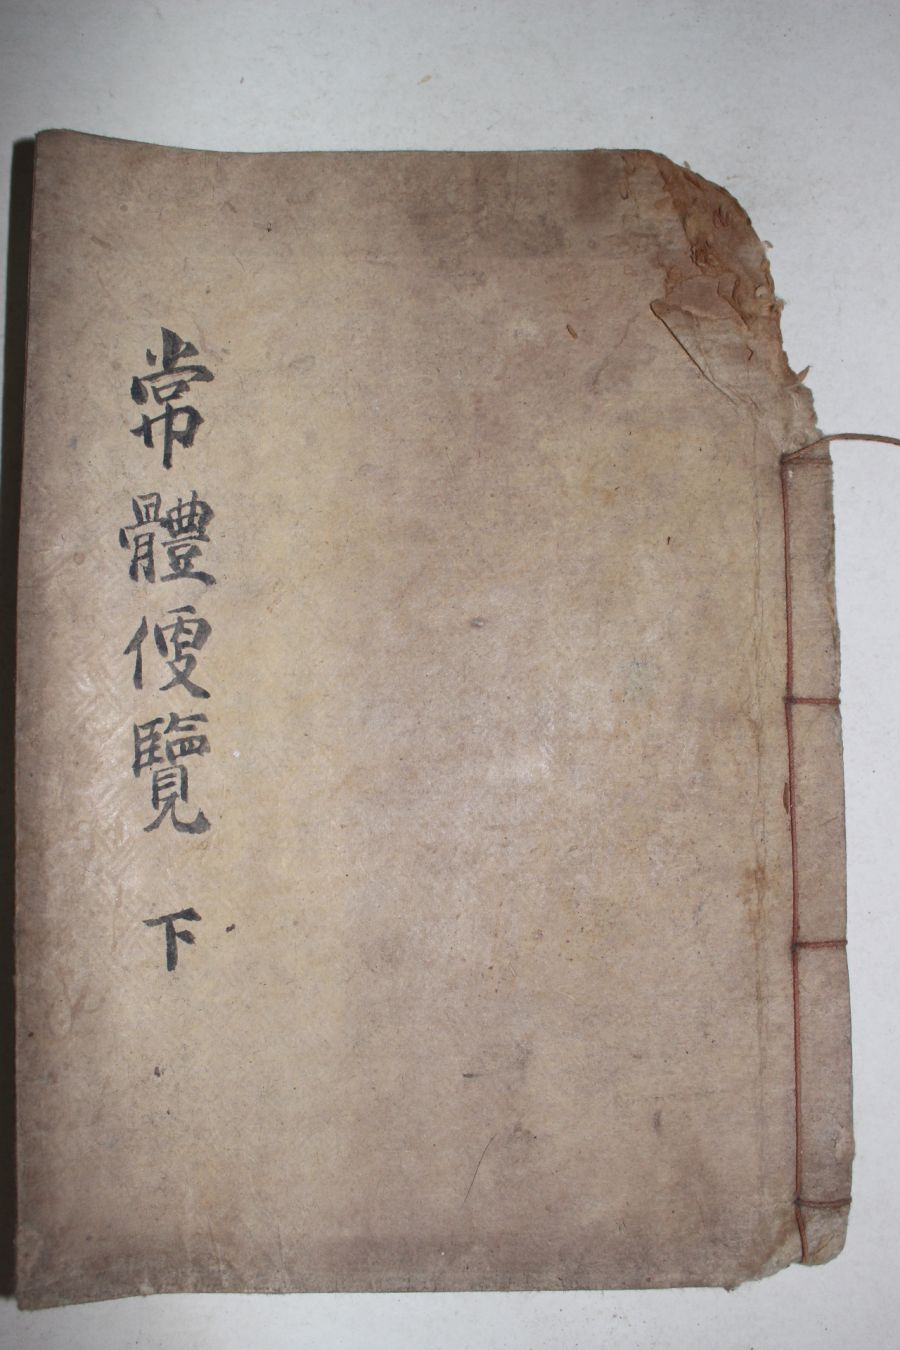 常體便覽 下